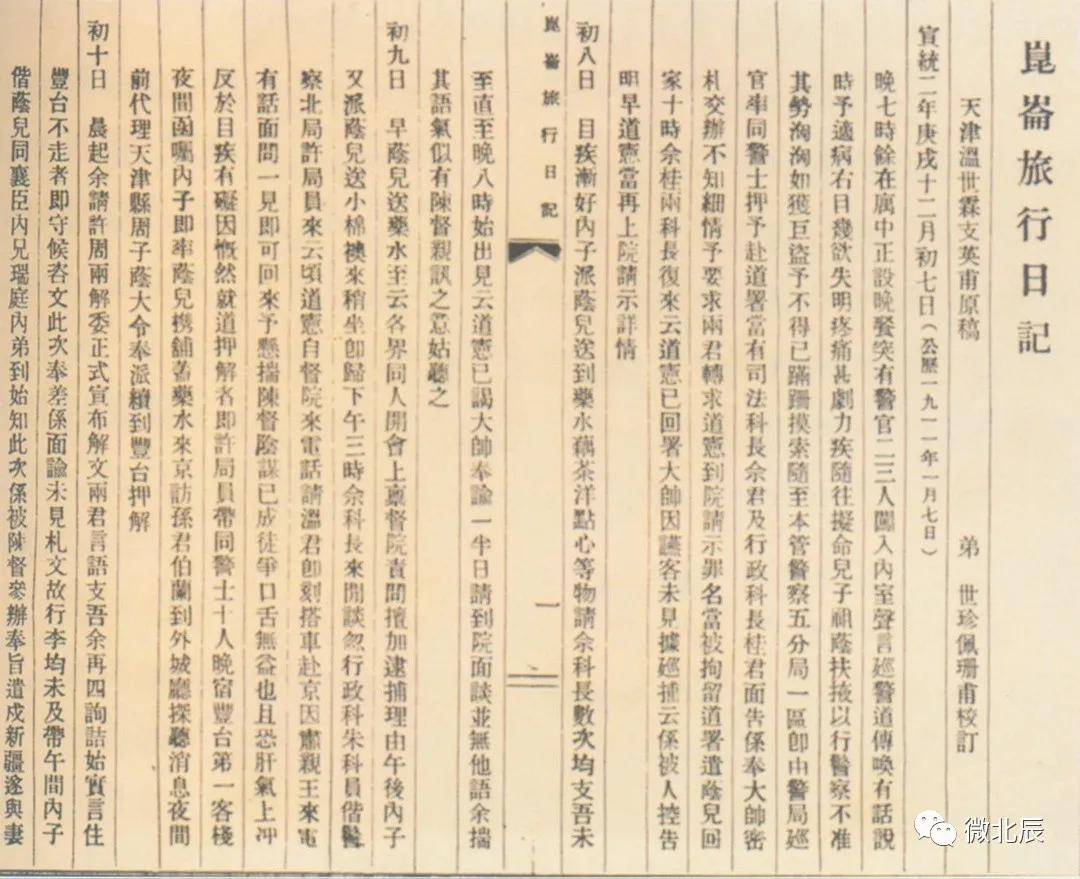 崑崙旅行日記
天津溫世霖支英甫原稿　弟　世珍佩珊甫校訂
宣統二年庚戌十二月初七日（公歷一九一一年一月七日）
晚七時餘在寓中正設晚餐突有警官二三人闖入內室聲言巡警道傳喚有話說
時予適病右目幾欲失明疼痛甚劇力疾隨往擬命兒子祖蔭扶掖以行警察不准
其勢洶洶如獲巨盜予不得已蹣跚摸索隨至本管警察五分局一區卽由警局巡
官率同警士押予赴道署當有司法科長余君及行政科長桂君面告係奉大帥密
札交辦不知細情予要求兩君轉求道憲到院請示罪名當被拘留道署遣蔭兒回
家十時余桂兩科長復來云道憲已回署大帥因讌客未見據巡捕云係被人控告
明早道憲當再上院請示詳情
初八日　目疾漸好內子派蔭兒送到藥水藕茶洋點心等物請余科長數次均支吾未
崑崙旅行日記　一
至直至晚八時始出見云道憲已謁大帥奉諭一半日請到院面談並無他語余揣
其語氣似有陳督親訊之意姑聽之
初九日　早蔭兒送藥水至云各界同人開會上稟督院責問擅加逮捕理由午後內子
又派蔭兒送小棉襖來稍坐卽歸下午三時余科長來閒談忽行政科朱科員偕醫
察北局許局員來云頃道憲自督院來電話請溫君卽刻搭車赴京因肅親王來電
有話面問一見卽可回來予懸揣陳督陰謀已成徒爭口舌無益也且恐肝气上冲
反於目疾有礙因慨然就道押解者卽許局員帶同警士十人晚宿豐台第一客棧
夜間函囑內子卽率蔭兒携舖蓋藥水來京訪孫君伯蘭到外城廳探聽消息夜間
前代理天津縣周子蔭大令奉派續到豐台押解
初十日　晨起余請許周兩解委正式宣布解文兩君言語支吾余再四詢詰始實言住
豐台不走者卽守候咨文此次奉差係面諭未見札文故行李均未及帶午間內子
偕蔭兒同襄臣內兄瑞庭內弟到始知此次係被陳督參辦奉旨遣戍新疆遂與妻
微北辰